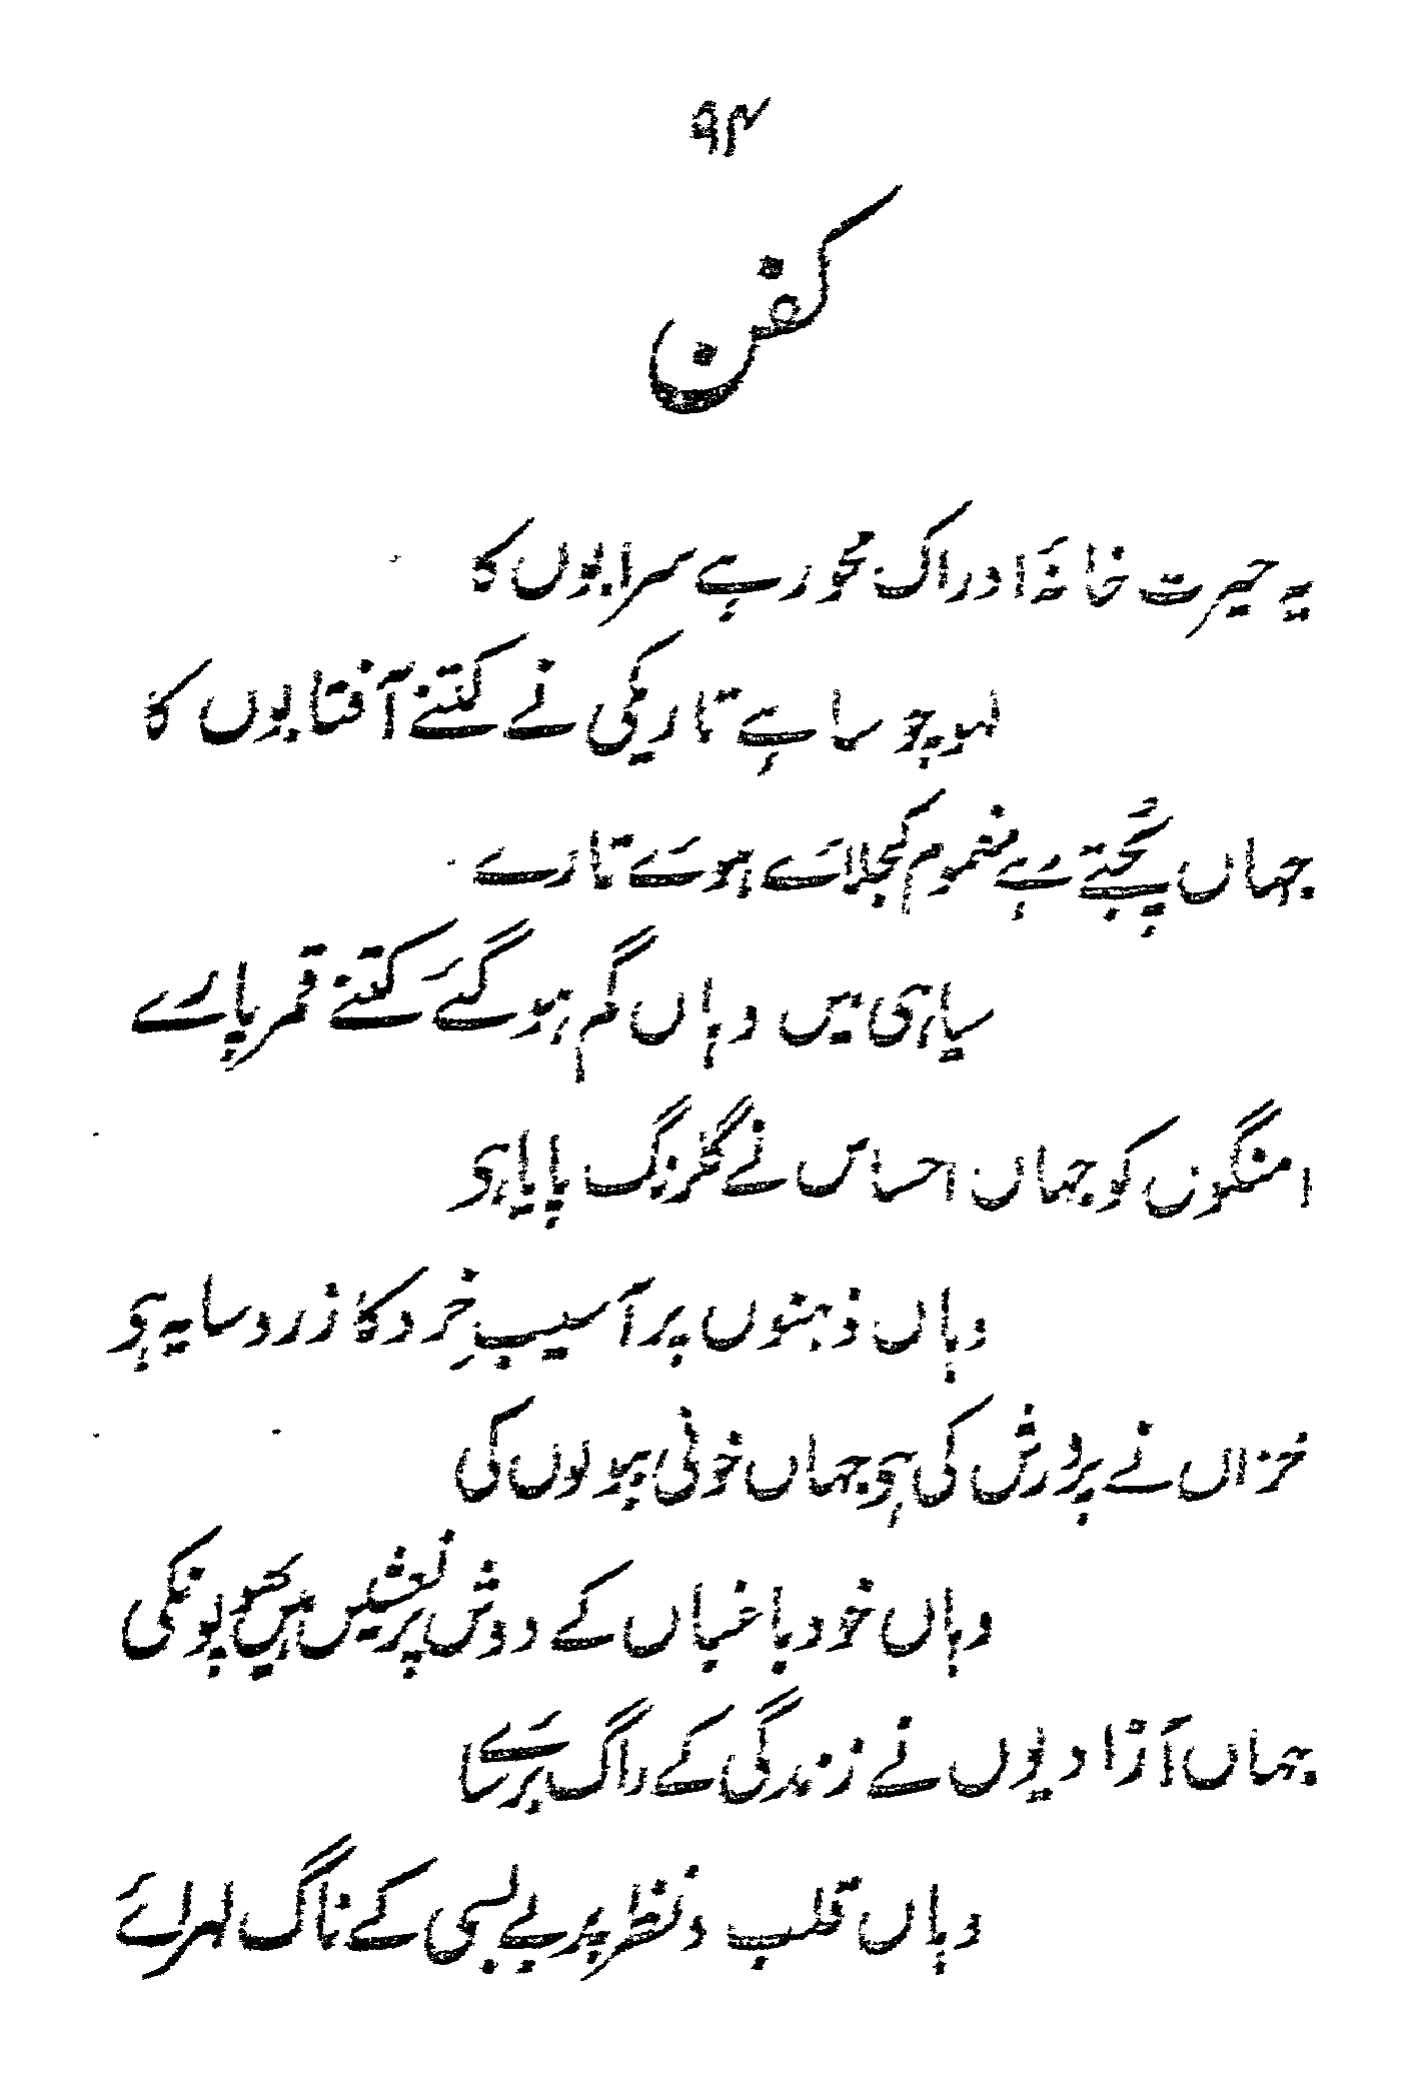 ۹۴
کفن
یہ حیرت خانۂ ادراک محور ہے سرابوں کا
لہو چوسا ہے تاریکی نے کتنے آفتابوں کا
جہاں پُجتے رہے مغموم کجلائے ہوئے تارے
سیاہی میں وہاں گم ہو گئے کتنے قمر پارے
امنگوں کو جہاں احساس نے گلرنگ پایا ہی
وہاں ذہنوں پر آسیبِ خِرد کا زرد سایہ ہی
خزاں نے پرورش کی ہی جہاں خونی ببولوں کی
وہاں خود باغباں کے دوش پر نعشیں ہیں پھولونکی
جہاں آزادیوں نے زندگی کے راگ برسائے
وہاں قلب و نظر پر بے بسی کے ناگ لہرائے